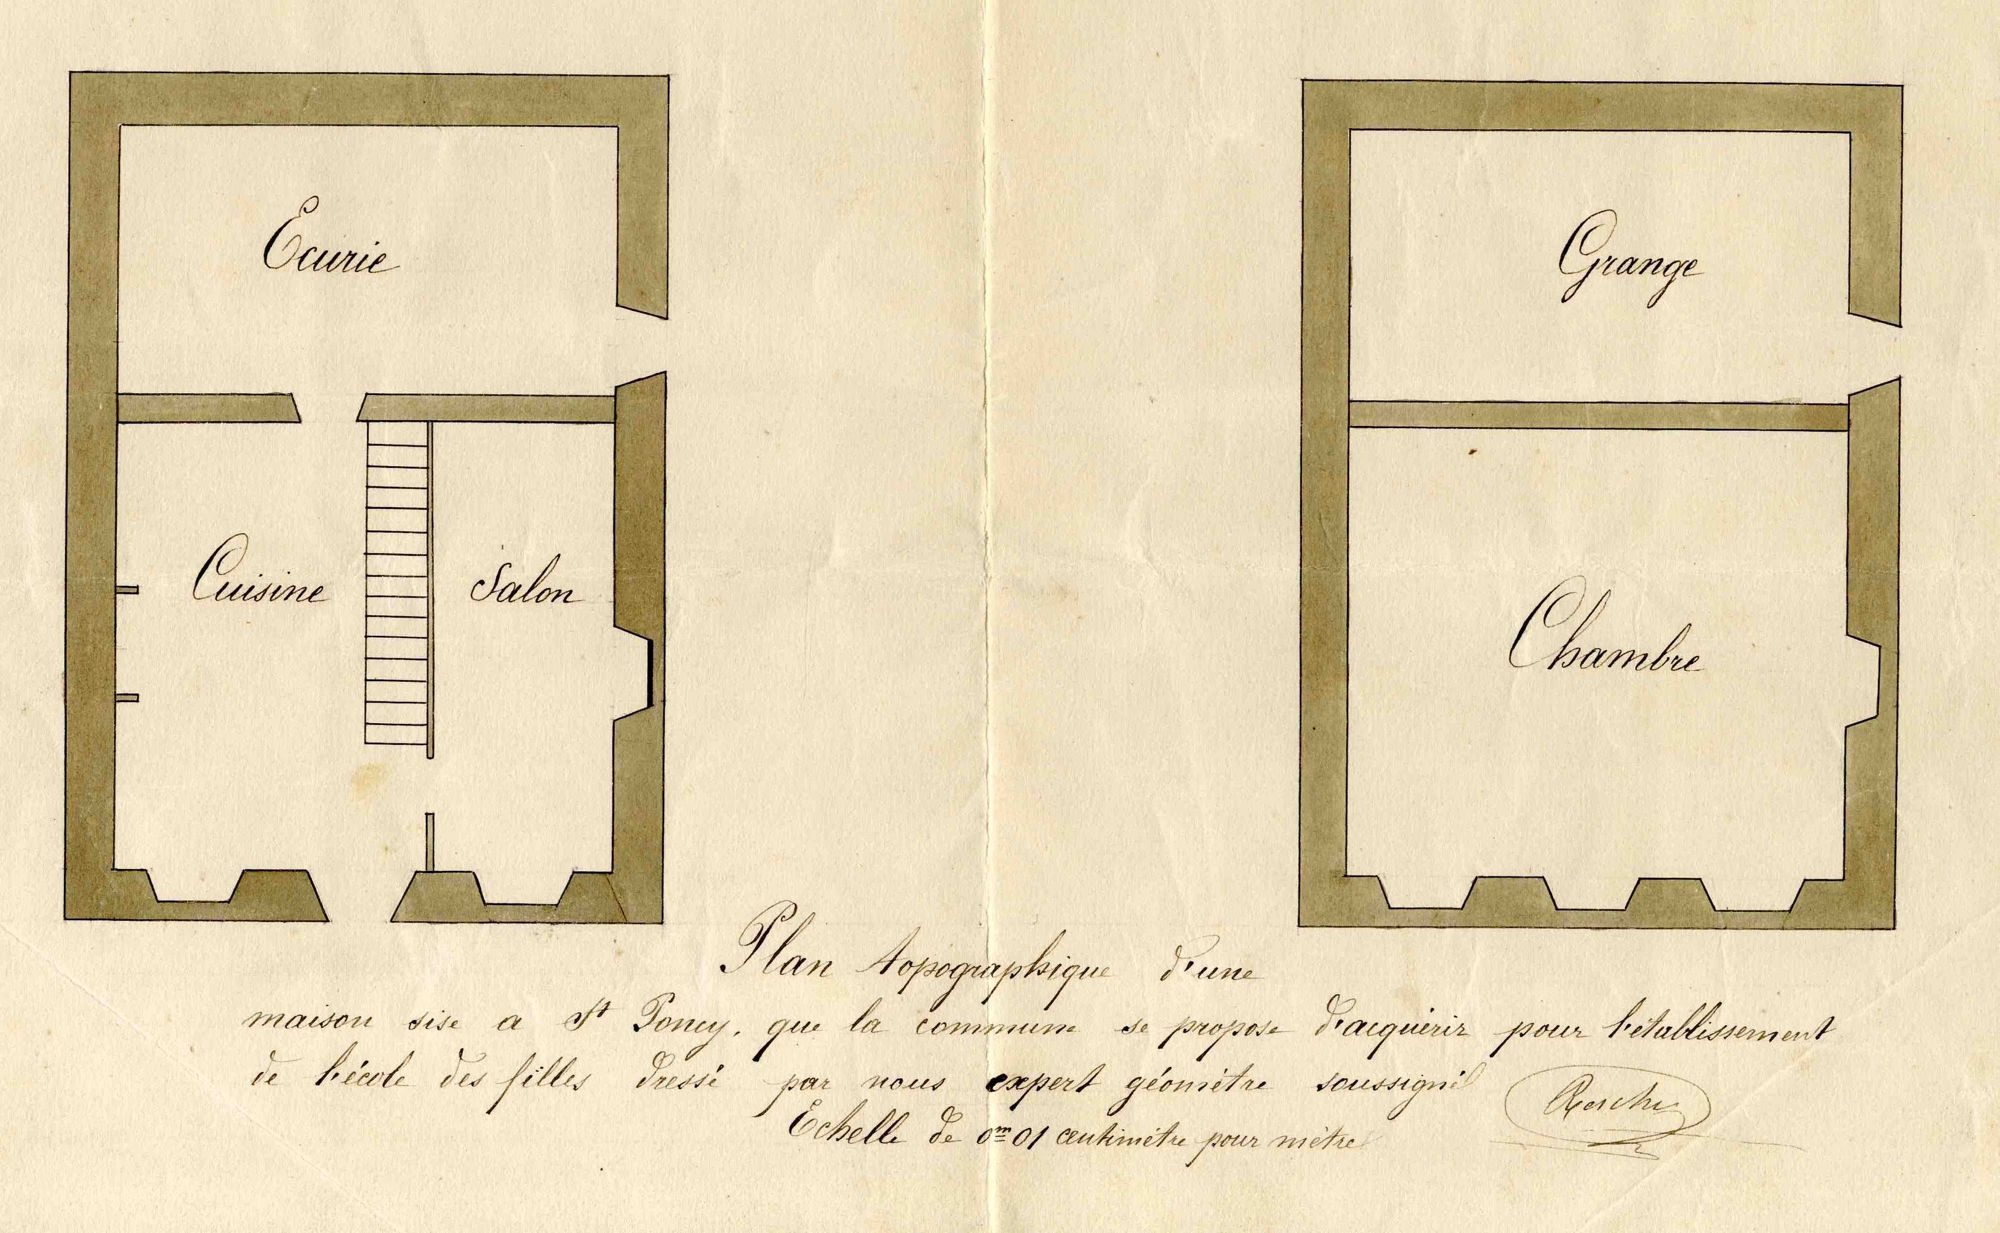 Ecurie
Cuisine
Salon
Grange
Chambre
Plan topographique d'une
maison sise a St Poncy, que la commune se propose d'acquérir pour l'établissement
de l'école des filles dressé par nous expert géomètre soussigné
Echelle de 0m 01 centimètre pour mètre